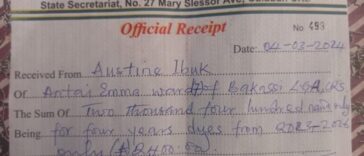 State Secretariat, No. 27 Mary Slessor Ave, Calabar CRS
Official Receipt
No 493
Date: 04-03-2024
Received From Austine Ibuk
Of Antai Emma ward 7 of Bakassi LGA, CRS
The Sum Of Two thousand four hundred naira only
Being for four years dues from 2023-2026
only (₦2400.00)